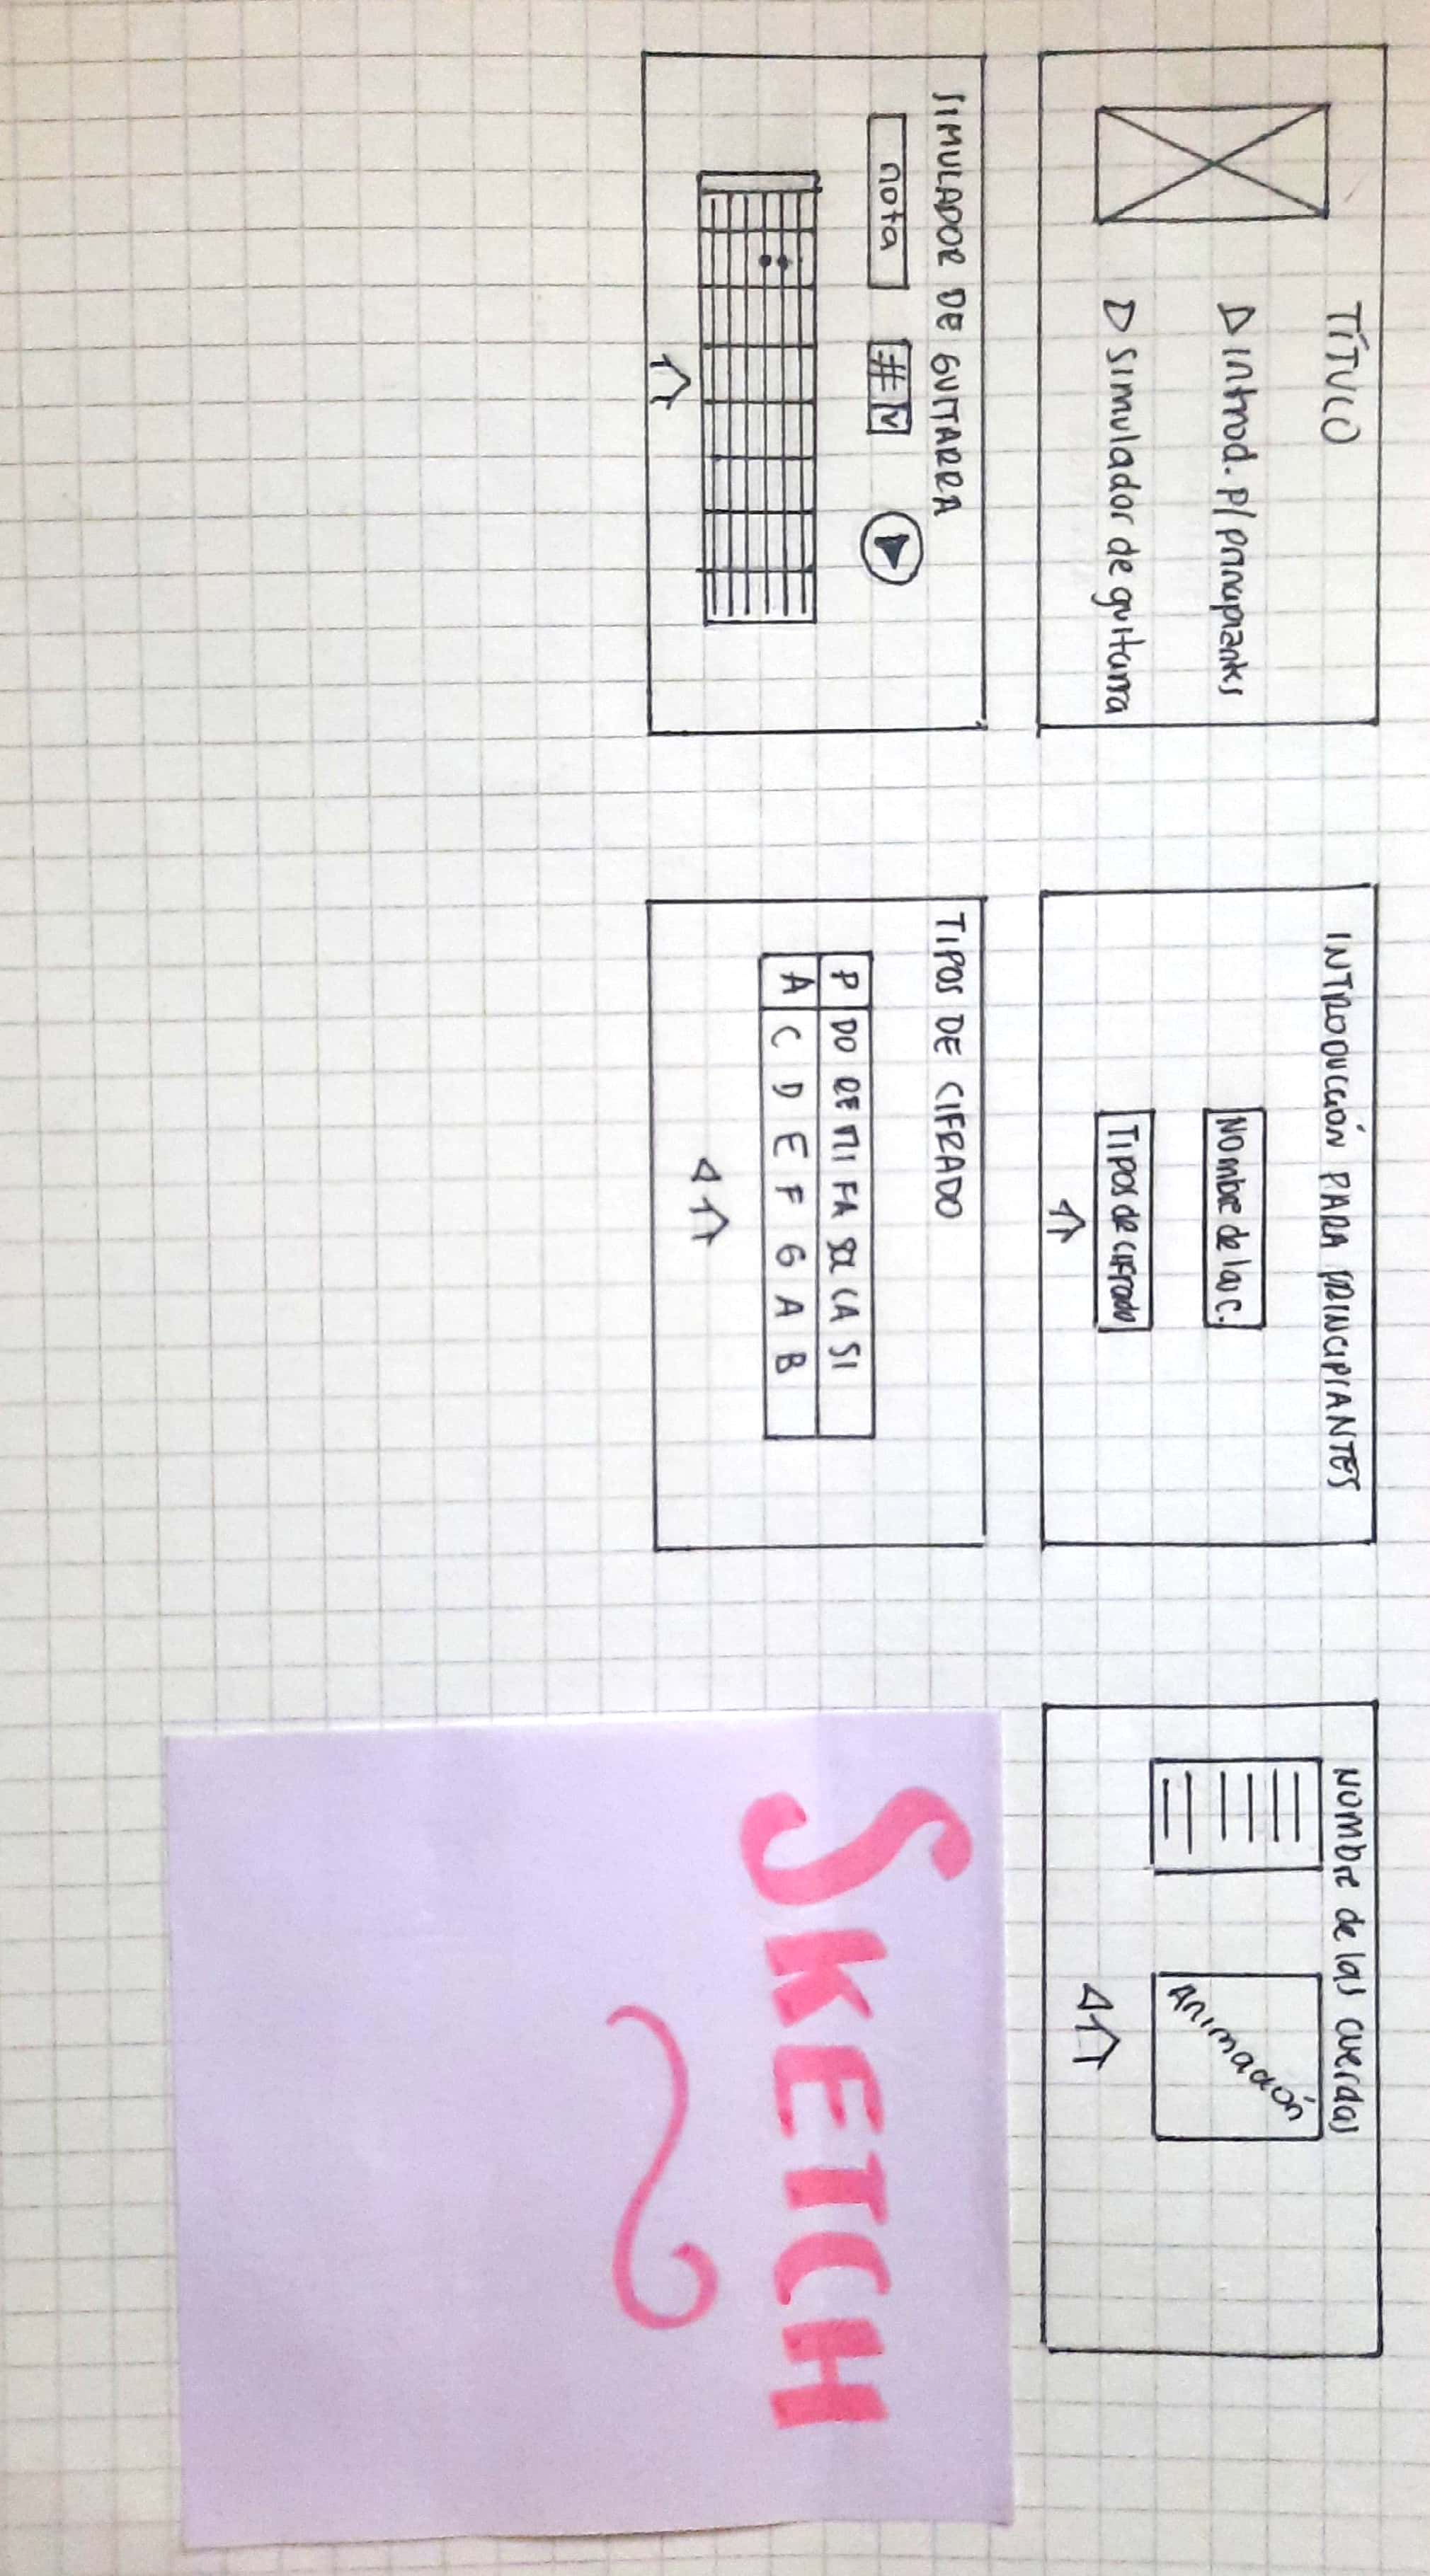 TÍTULO
Introd. p/ principiantes
Simulador de guitarra
INTRODUCCIÓN PARA PRINCIPIANTES
Nombre de las c.
TIPOS de cifrado
Nombre de las cuerdas
Animación
SIMULADOR DE GUITARRA
nota
#
TIPOS DE CIFRADO
P DO RE MI FA SOL LA SI
A C D E F G A B
SKETCH